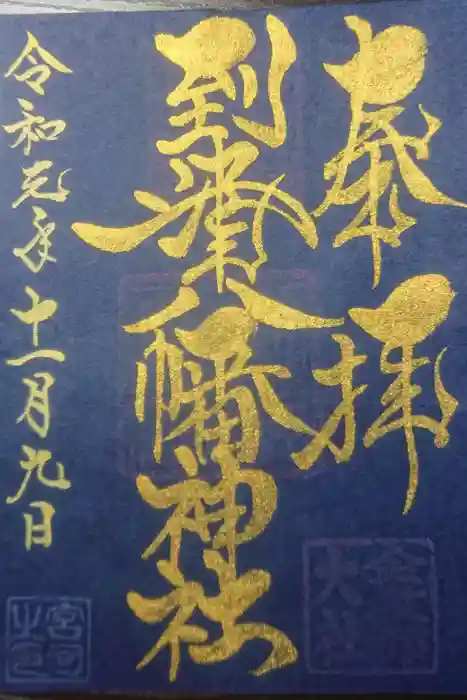 奉拝
到津八幡神社
令和元年十一月九日